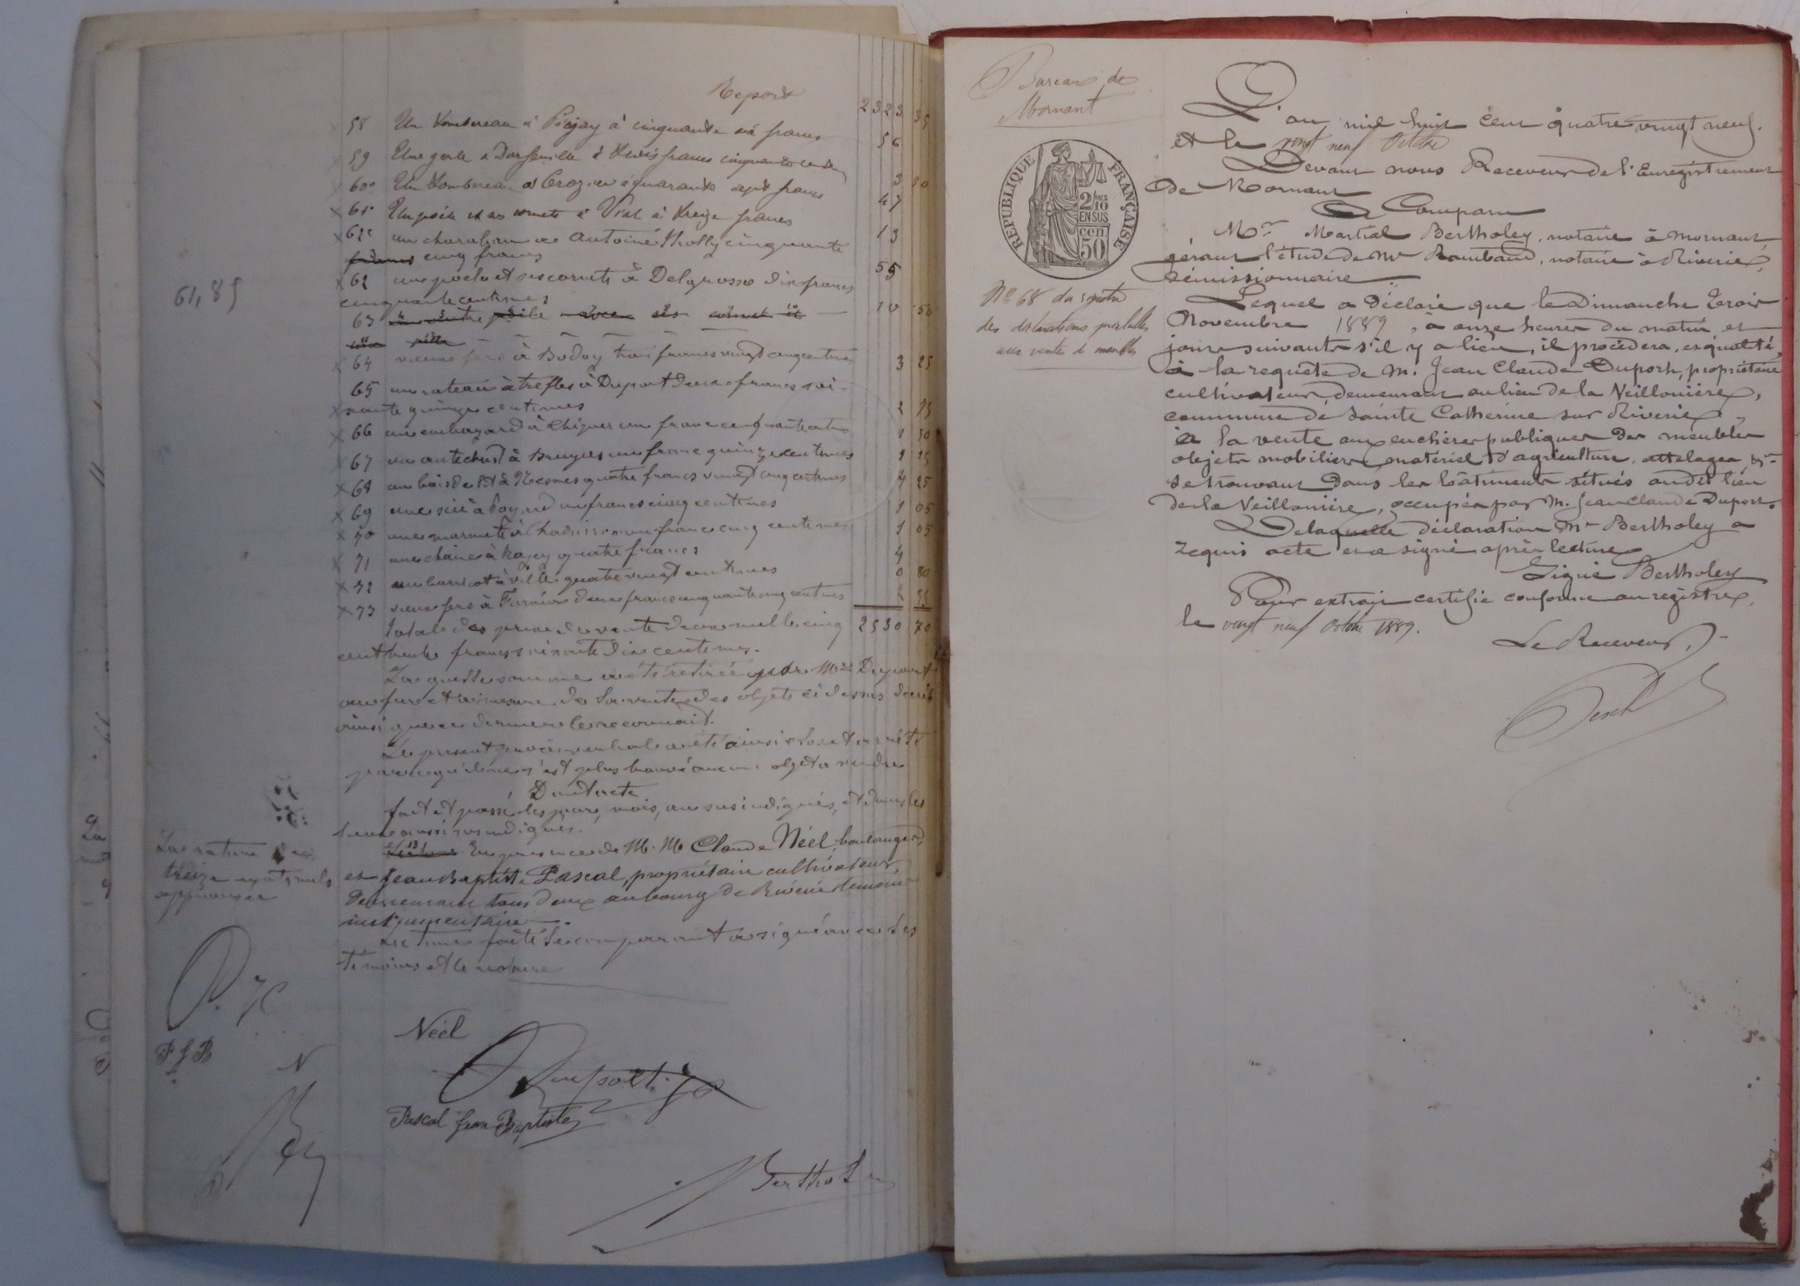 Report 2323 35
58 Un tombereau à Pizay à cinquante six francs 56
59 Une à à trois francs cinquante cent 3 50
60 Un tombereau à Crozier à quarante sept francs 47
61 Un poële et ses cornets à Vial à treize francs 13
61 un char à banc à Antoine Tholly cinquante
francs cinq francs 55
61,85
62 une poele et ses cornets à Delgrosso dix francs
cinquante centimes 10 50
63
64 vieux fers à Boboy trois francs vingt cinq centimes 3 25
65 un rateau à trefles à Duport deux francs soi-
xante quinze centimes 2 75
66 à Chipier un franc cinquante centimes 1 50
67 un à Bruyas un franc quinze centimes 1 15
68 un bois de lit à quatre francs vingt cinq centimes 4 25
69 une scie à un franc cinq centimes 1 05
70 une marmite à un franc cinq centimes 1 05
71 une chaine à quatre francs 4
72 un barricot à Ville quatre vingt centimes 0 80
73 vieux fers à Furnion deux francs cinquante cinq centimes 2 55
Total des prix de vente deux mille cinq 2530 70
cent trente francs soixante dix centimes.
Laquelle somme a été retirée par Mr Duport
au fur et à mesure de la vente des objets ci dessus
ainsi que ce dernier le reconnait.
Le present procès verbal a été ainsi clos et arrêté
parce qu'il ne s'est plus trouvé aucun objet à vendre
Dont acte
fait et passé les jour, mois, an susindiqués, et dans les
lieux aussi susindiqués.
En présence de M. M Claude Néel, boulanger
et Jean Baptiste Pascal, propriétaire cultivateur,
demeurant tous deux au bourg de Riverie témoins
instrumentaires.
Lecture faite le comparant a signé avec les
témoins et le notaire
La rature de
treize mots nuls
approuvée
D. JC
P J B
N
Néel
Duport JC
Pascal Jean Baptiste
Bertholey
Bureau de
Mornant
RÉPUBLIQUE FRANÇAISE
2/10
EN SUS
50
cen
No 68 du registre
des déclarations préalables
aux ventes de meubles
L'an mil huit cent quatre vingt neuf.
et le vingt neuf Octobre
Devant nous Receveur de l'Enregistrement
de Mornant
A Comparu
Mr. Martial Bertholey, notaire à Mornant,
gérant l'étude de Mr Rambaud, notaire à Riverie,
démissionnaire
Lequel a déclaré que le Dimanche trois
Novembre 1889, à onze heures du matin, et
jours suivants s'il y a lieu, il procèdera, es qualité,
à la requête de M. Jean Claude Duport, propriétaire
cultivateur, demeurant au lieu de la Veillonière,
commune de Sainte Catherine sur Riverie,
à la vente aux enchères publiques des meubles
objets mobiliers, matériel d'agriculture, attelages &a
se trouvant dans les bâtiments situés au dit lieu
de la Veillonière, occupés par M. Jean Claude Duport.
De laquelle déclaration Mr Bertholey a
requis acte et a signé après lecture
Signé Bertholey
Pour extrait certifié conforme au registre,
le vingt neuf Octobre 1889.
Le Receveur,